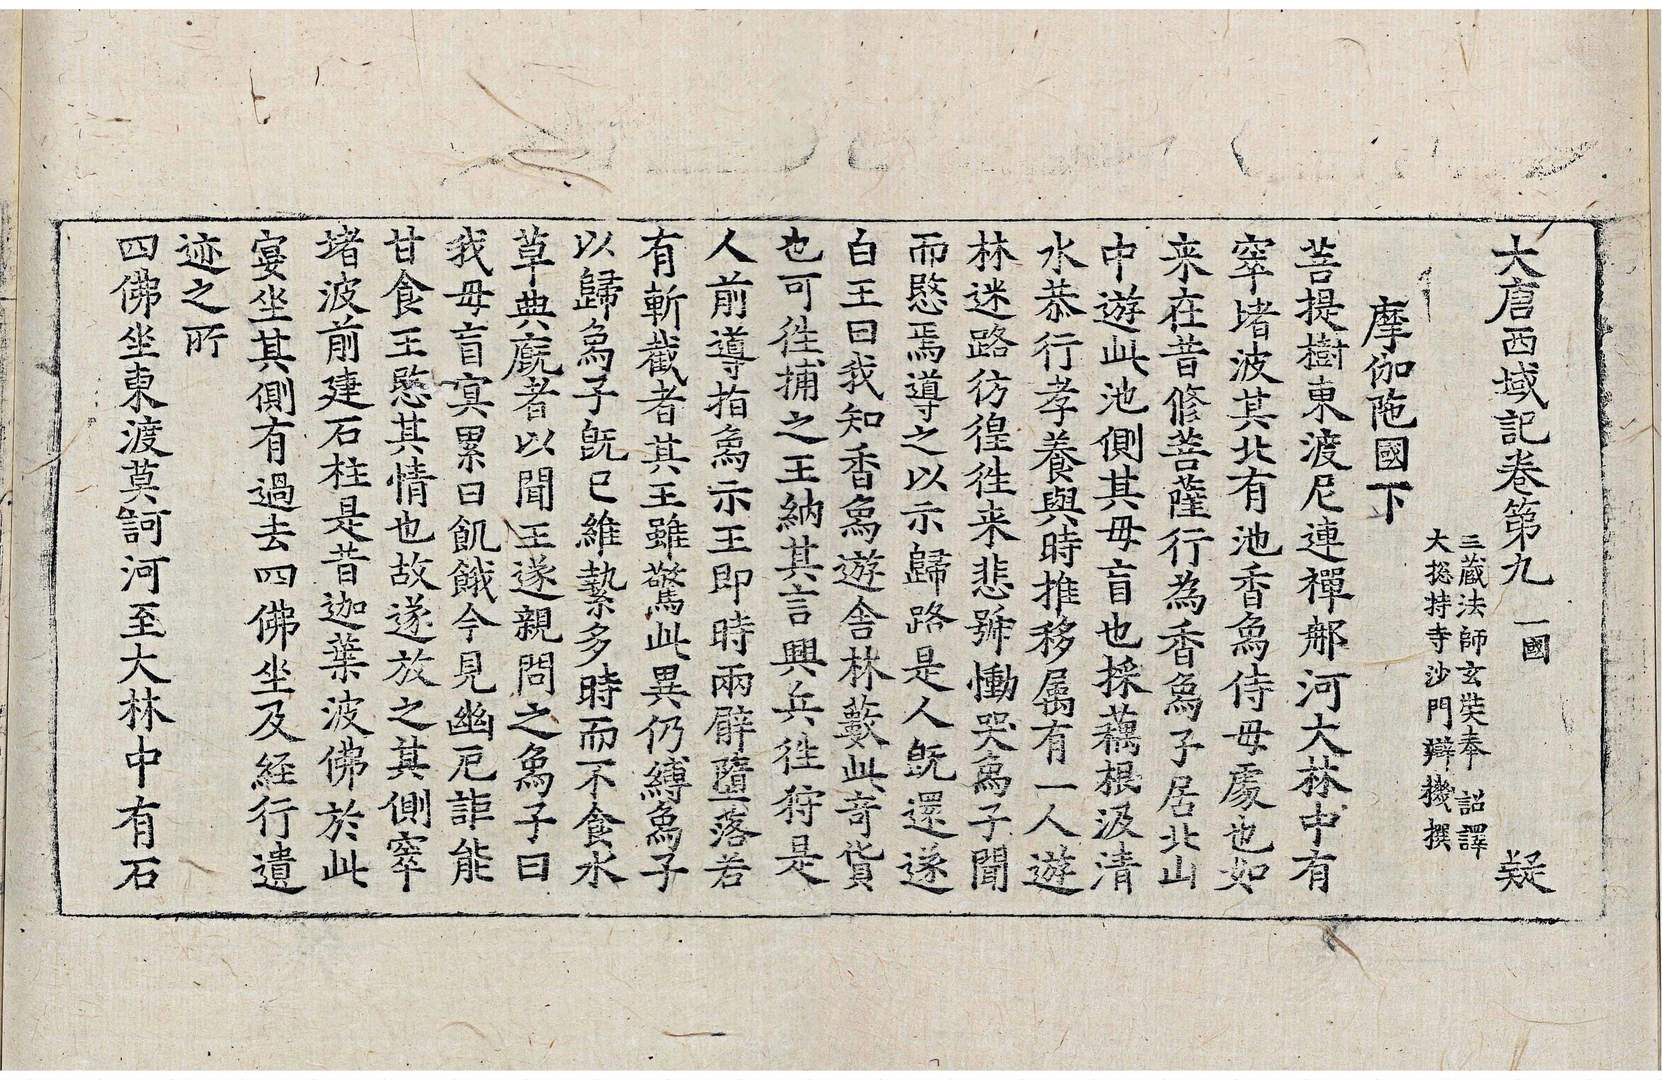 大唐西域記卷第九 一國 疑
三藏法師玄奘奉 詔譯
大揔持寺沙門辯機撰
摩伽陁國下
菩提樹東渡尼連禪𨚗河大林中有
窣堵波其北有池香象侍母處也如
来在昔修菩薩行為香象子居北山
中遊此池側其母盲也採藕根汲清
水恭行孝養與時推移属有一人遊
林迷路彷徨徃来悲號慟哭象子聞
而愍焉導之以示歸路是人旣還遂
白王曰我知香象遊舍林藪此奇貨
也可徃捕之王納其言興兵徃狩是
人前導指象示王即時兩臂墮落若
有斬截者其王雖驚此異仍縛象子
以歸象子旣已維縶多時而不食水
草典廐者以聞王遂親問之象子曰
我母盲冥累日飢餓今見幽厄詎能
甘食王愍其情也故遂放之其側窣
堵波前建石柱是昔迦葉波佛於此
宴坐其側有過去四佛坐及經行遺
迹之所
四佛坐東渡莫訶河至大林中有石